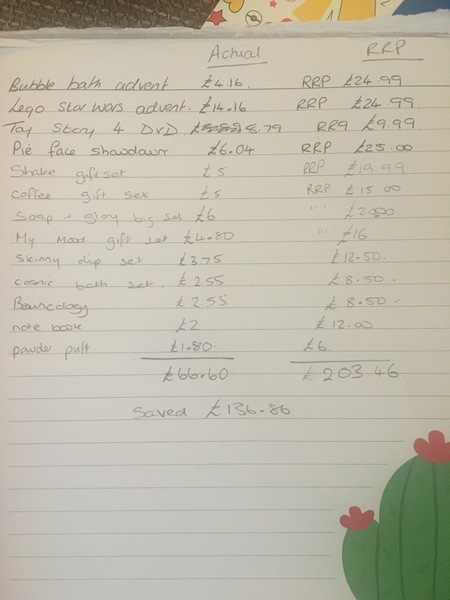 Actual RRP
Bubble bath advent £4.16. RRP £24.99
Lego Star Wars advent. £14.16 RRP £24.99
Toy Story 4 DVD 8.79 RR9 £9.99
Pie face showdown £6.04 RRP £25.00
Shake giftset £5 RRP £19.99
Coffee gift set £5 RRP £15.00
Soap + glory big set £6 " £20.00
My Mood gift set £4.80 " £16
Skinny dip set £3.75 £12.50.
Cosmic bath set. £2.55 £8.50.
£2.55 £8.50.
note book £2 £12.00
powder puff £1.80 £6.
£66.60 £203.46
Saved £136.86